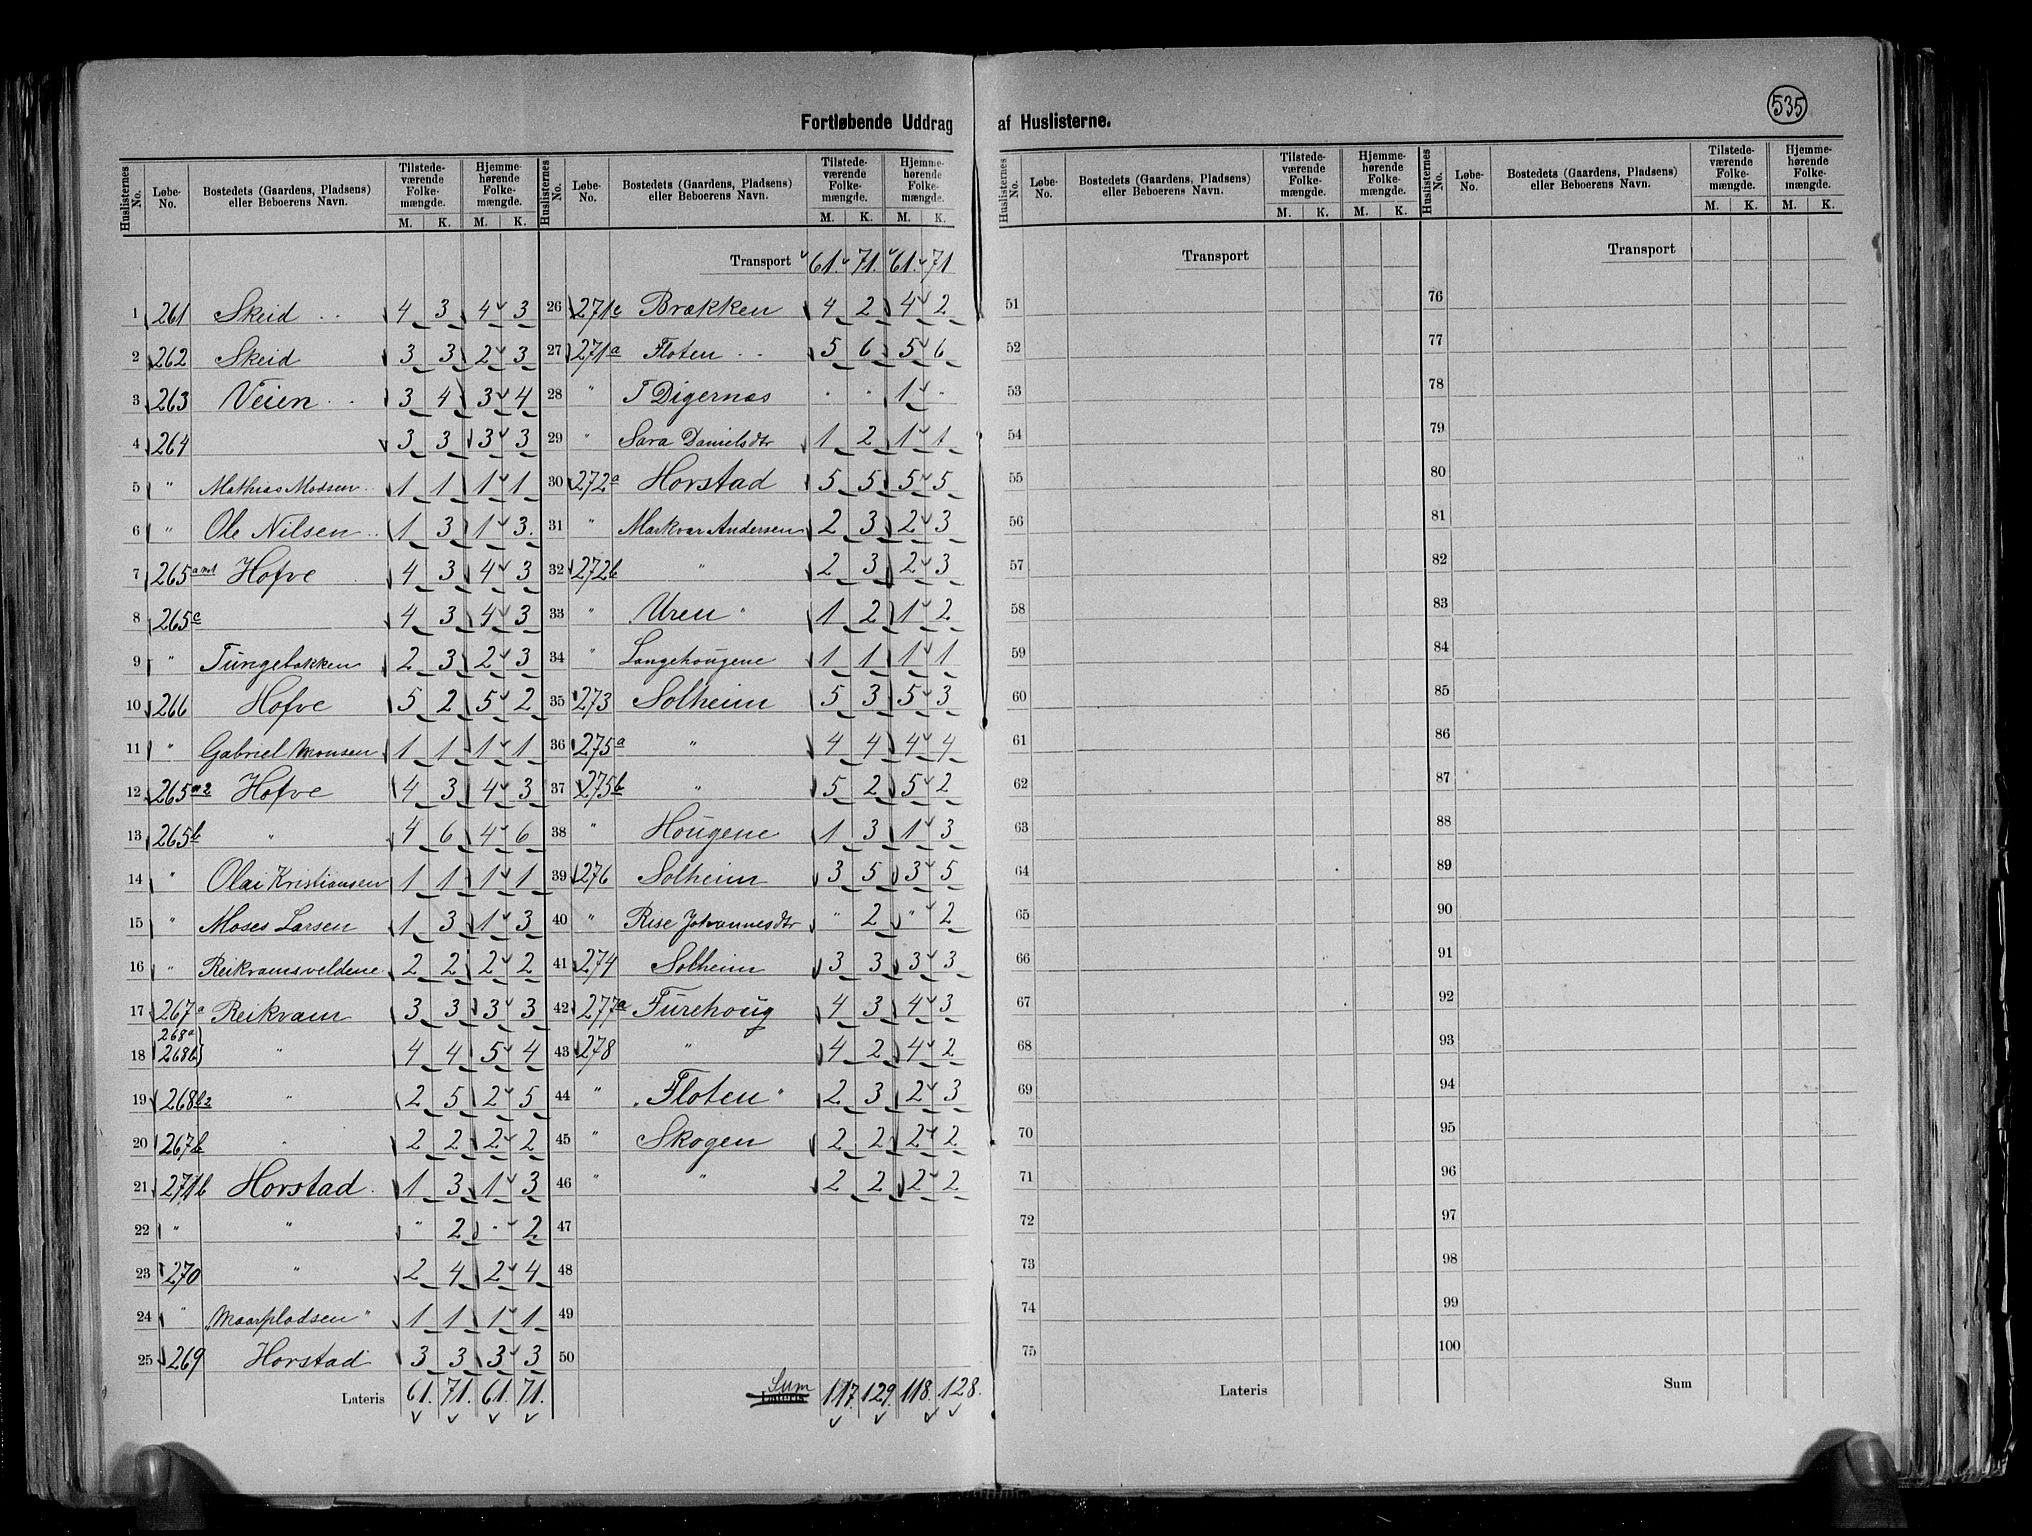 535
Fortløbende Uddrag af Huslisterne.
Huslisternes No. | Løbe-No. | Bostedets (Gaardens, Pladsens) eller Beboerens Navn. | Tilstedeværende Folkemængde. M. K. | Hjemmehørende Folkemængde. M. K.
1 261 Skeid 4 3 4 3
2 262 Skeid 3 3 2 3
3 263 Veien 3 4 3 4
4 264 3 3 3 3
5 " Mathias Madsen 1 1 1 1
6 " Ole Nilsen 1 3 1 3
7 265 a n1 Hofve 4 3 4 3
8 265c 4 3 4 3
9 " Tungebakken 2 3 2 3
10 266 Hofve 5 2 5 2
11 " Gabriel Monsen 1 1 1 1
12 265 a 2 Hofve 4 3 4 3
13 265b " 4 6 4 6
14 " Olai Kristiansen 1 1 1 1
15 " Moses Larsen 1 3 1 3
16 " Reikvamsveldene 2 2 2 2
17 267a Reikvam 3 3 3 3
18 268a 268b } " 4 4 5 4
19 268b2 " 2 5 2 5
20 267b " 2 2 2 2
21 271b Horstad 1 3 1 3
22 " " " 2 " 2
23 270 " 2 4 2 4
24 " "Maarpladsen" 1 1 1 1
25 269 Horstad 3 3 3 3
Lateris 61. 71. 61. 71.
Huslisternes No. | Løbe-No. | Bostedets (Gaardens, Pladsens) eller Beboerens Navn. | Tilstedeværende Folkemængde. M. K. | Hjemmehørende Folkemængde. M. K.
Transport 61. 71. 61. 71
26 271c Brækken 4 2 4 2
27 271a Floten 5 6 5 6
28 " T Digernæs " " 1 "
29 " Sara Danielsdtr 1 2 1 1
30 272a Horstad 5 5 5 5
31 " Markvar Andersen 2 3 2 3
32 272b " 2 3 2 3
33 " Uren " 1 2 1 2
34 " Langehougene 1 1 1 1
35 273 Solheim 5 3 5 3
36 275a " 4 4 4 4
37 275b " 5 2 5 2
38 " Hougene 1 3 1 3
39 276 Solheim 3 5 3 5
40 " Rise Johannesdtr " 2 " 2
41 274 Solheim 3 3 3 3
42 277a Furehoug 4 3 4 3
43 278 " 4 2 4 2
44 " "Floten" 2 3 2 3
45 " Skogen 2 2 2 2
46 " " 2 2 2 2
47
48
49
50
Sum Lateris 117. 129. 118. 128.
Huslisternes No. | Løbe-No. | Bostedets (Gaardens, Pladsens) eller Beboerens Navn. | Tilstedeværende Folkemængde. M. K. | Hjemmehørende Folkemængde. M. K.
Transport
51
52
53
54
55
56
57
58
59
60
61
62
63
64
65
66
67
68
69
70
71
72
73
74
75
Lateris
Huslisternes No. | Løbe-No. | Bostedets (Gaardens, Pladsens) eller Beboerens Navn. | Tilstedeværende Folkemængde. M. K. | Hjemmehørende Folkemængde. M. K.
Transport
76
77
78
79
80
81
82
83
84
85
86
87
88
89
90
91
92
93
94
95
96
97
98
99
100
Sum